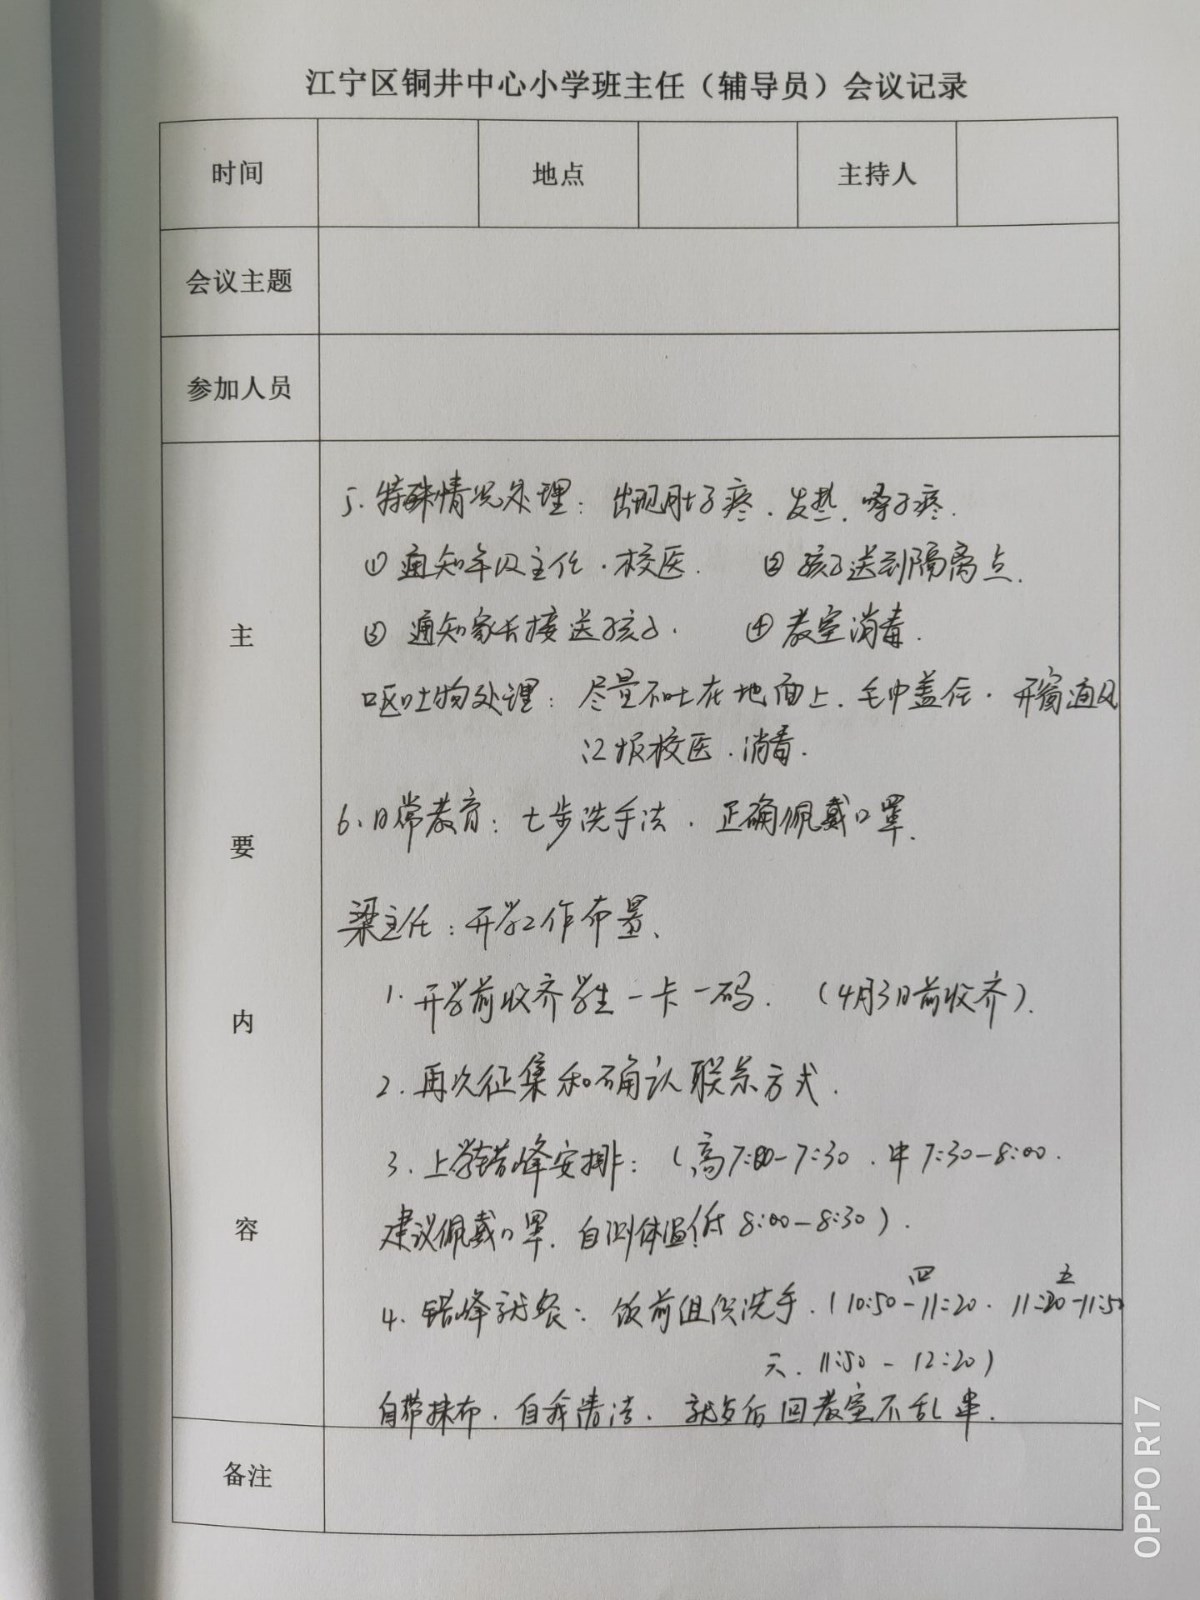 江宁区铜井中心小学班主任（辅导员）会议记录
时间 地点 主持人
会议主题
参加人员
主要内容
5.特殊情况处理：出现肚子疼.发热.嗓子疼.
①通知年级主任.校医. ②孩子送到隔离点.
③通知家长接送孩子. ④教室消毒.
呕吐物处理：尽量不吐在地面上.毛巾盖住.开窗通风
汇报校医.消毒.
6.日常教育：七步洗手法.正确佩戴口罩.
梁主任：开学工作布置.
1.开学前收齐学生一卡一码.（4月3日前收齐）.
2.再次征集和确认联系方式.
3.上学错峰安排：（高7:00-7:30.中7:30-8:00.
建议佩戴口罩.自测体温 低8:00-8:30）.
4.错峰就餐：饭前组织洗手.（10:50-11:20.四 11:20-11:50 五
六.11:50-12:20）
自带抹布.自我清洁.就餐后回教室不乱串.
备注
OPPO R17